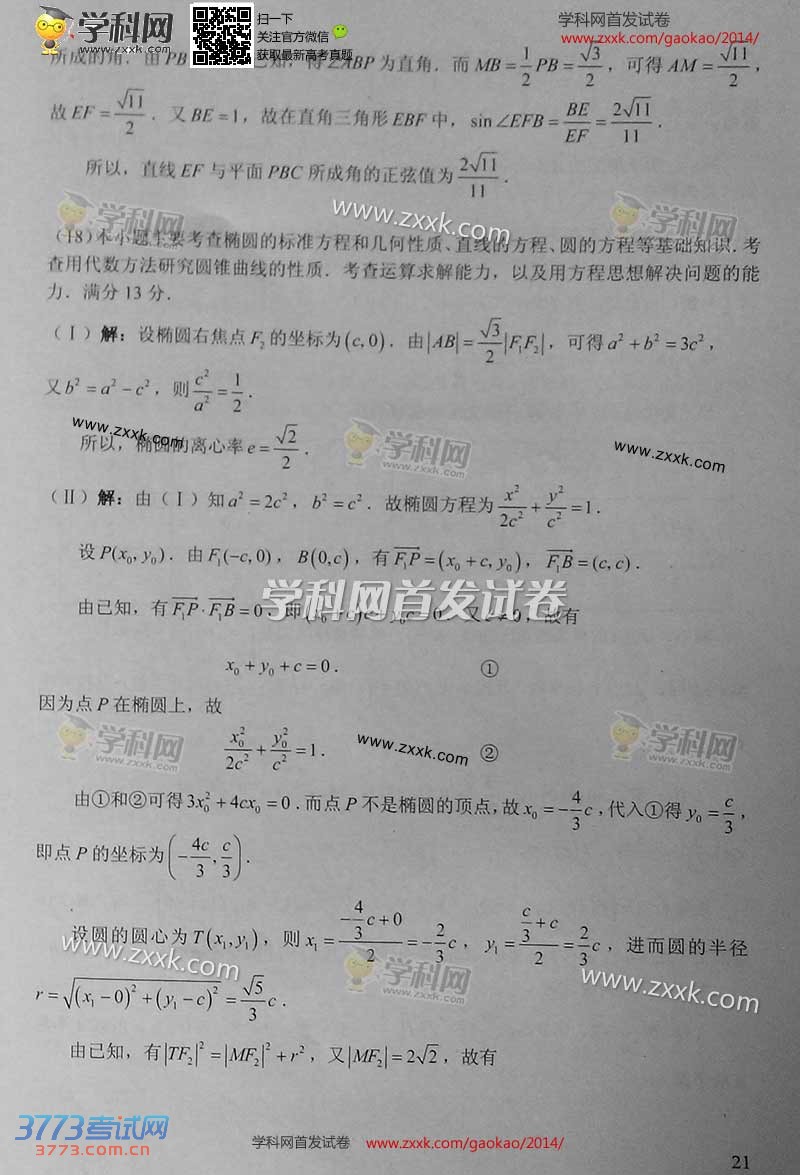 学科网
www.zxxk.com
扫一下
关注官方微信
获取最新高考真题
学科网首发试卷
www.zxxk.com/gaokao/2014/
所成的角. 由 PB 已知, 得 ∠ABP 为直角. 而 MB = 1/2 PB = √3/2, 可得 AM = √11/2,
故 EF = √11/2. 又 BE = 1, 故在直角三角形 EBF 中, sin∠EFB = BE/EF = 2√11/11.
所以, 直线 EF 与平面 PBC 所成角的正弦值为 2√11/11.
学科网
www.zxxk.com
学科网
(18) 本小题主要考查椭圆的标准方程和几何性质、直线的方程、圆的方程等基础知识. 考
查用代数方法研究圆锥曲线的性质. 考查运算求解能力, 以及用方程思想解决问题的能
力. 满分 13 分.
(Ⅰ) 解: 设椭圆右焦点 F₂ 的坐标为 (c,0). 由 |AB| = √3/2 |F₁F₂|, 可得 a² + b² = 3c²,
又 b² = a² − c², 则 c²/a² = 1/2.
www.zxxk.com
学科网
www.zxxk.com
所以, 椭圆的离心率 e = √2/2.
(Ⅱ) 解: 由 (Ⅰ) 知 a² = 2c², b² = c². 故椭圆方程为 x²/2c² + y²/c² = 1.
设 P(x₀, y₀). 由 F₁(−c,0), B(0,c), 有 F₁P→ = (x₀ + c, y₀), F₁B→ = (c,c).
学科网首发试卷
由已知, 有 F₁P→ · F₁B→ = 0, 即 (x₀ + c)c + y₀c = 0. 又 c ≠ 0, 故有
x₀ + y₀ + c = 0. ①
因为点 P 在椭圆上, 故
学科网
www.zxxk.com
学科网
x₀²/2c² + y₀²/c² = 1. ②
由①和②可得 3x₀² + 4cx₀ = 0. 而点 P 不是椭圆的顶点, 故 x₀ = −4/3 c, 代入①得 y₀ = c/3,
即点 P 的坐标为 (−4c/3, c/3).
设圆的圆心为 T(x₁, y₁), 则 x₁ = (−4/3 c + 0)/2 = −2/3 c, y₁ = (c/3 + c)/2 = 2/3 c, 进而圆的半径
www.zxxk.com
学科网
www.zxxk.com
www.zxxk.com
r = √((x₁ − 0)² + (y₁ − c)²) = √5/3 c.
由已知, 有 |TF₂|² = |MF₂|² + r², 又 |MF₂| = 2√2, 故有
3773考试网
3773.com.cn
学科网首发试卷
www.zxxk.com/gaokao/2014/
21